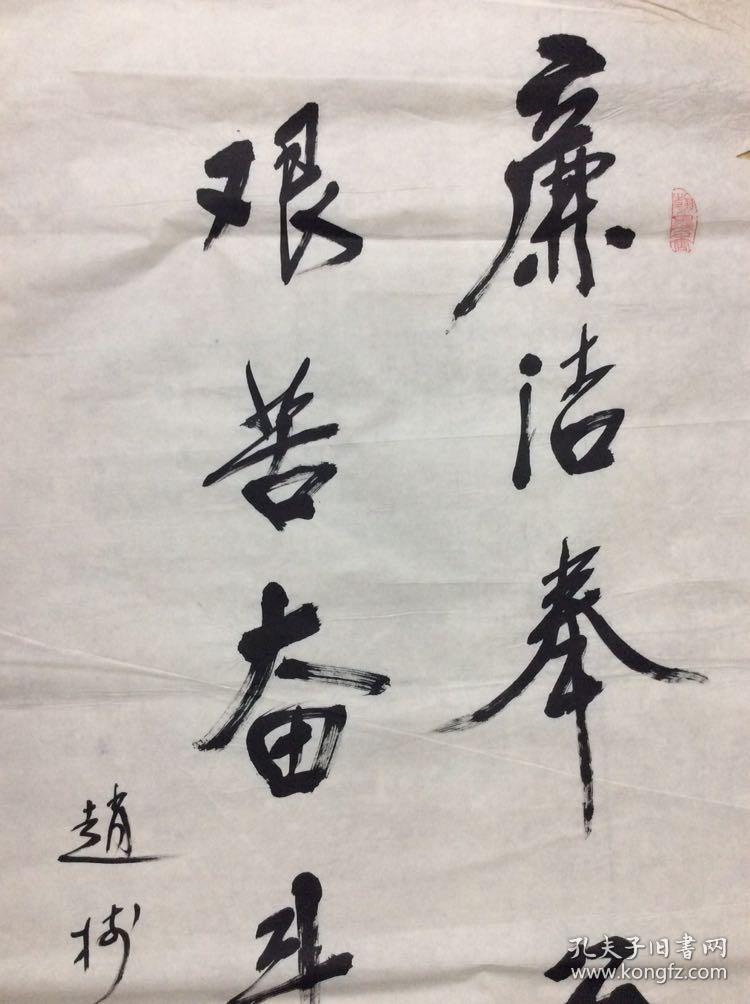 廉洁奉
艰苦奋斗
趙樹
孔夫子旧書网
www.kongfz.com